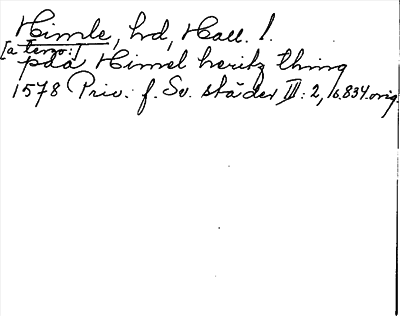 Himle, hd, Hall. l.
[a tergo:]
påå Himel heritz thing
1578 Priv. f. Sv. städer III: 2, s. 834. orig.